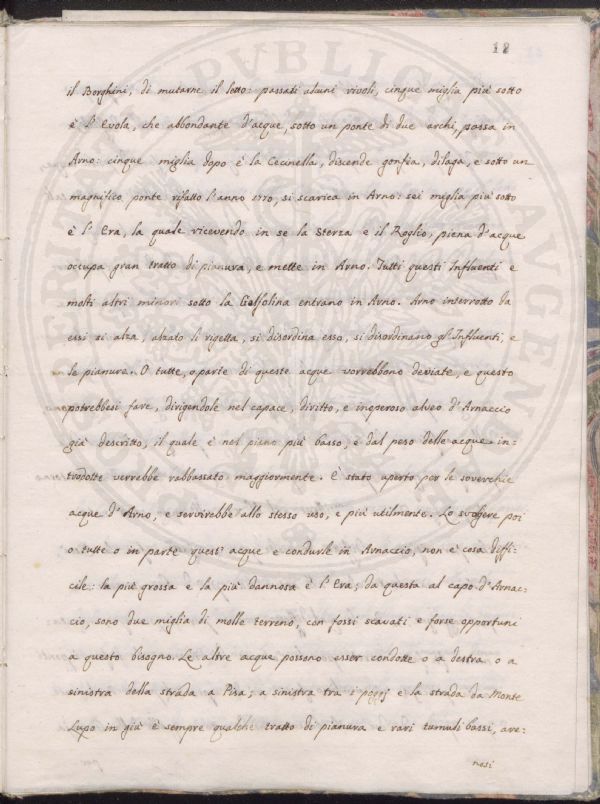 18
il Borghini, di mutarne il letto: passati alcuni rivoli, cinque miglia più sotto
è l'Evola, che abbondante d'acque, sotto un ponte di due archi, passa in
Arno: cinque miglia dopo è la Cecinella, discende gonfia, dilaga, e sotto un
magnifico ponte rifatto l'anno 1770, si scarica in Arno: sei miglia più sotto
è l'Era, la quale ricevendo in se la Sterza e il Roglio, piena d'acque
occupa gran tratto di pianura, e mette in Arno. Tutti questi Influenti e
molti altri minori sotto la Golfolina entrano in Arno. Arno interrotto da
essi si alza, alzato li rigetta, si disordina esso, si disordinano gl'Influenti, e
le pianure. O tutte, o parte di queste acque vorrebbono deviate, e questo
potrebbesi fare, dirigendole nel capace, diritto, e inoperoso alveo d'Arnaccio
già descritto, il quale è nel piano più basso, e dal peso delle acque in-
trodotte verrebbe rabbassato maggiormente. È stato aperto per le soverchie
acque d'Arno, e servirebbe allo stesso uso, e più utilmente. Lo svolgere poi
o tutte o in parte quest'acque e condurle in Arnaccio, non è cosa diffi-
cile: la più grossa e la più dannosa è l'Era; da questa al capo d'Arnac-
cio, sono due miglia di molle terreno, con fossi scavati e forse opportuni
a questo bisogno. Le altre acque possono esser condotte o a destra o a
sinistra della strada a Pisa; a sinistra tra i poggj e la strada da Monte
Lupo in giù è sempre qualche tratto di pianura e rari tumuli bassi, are-
nosi